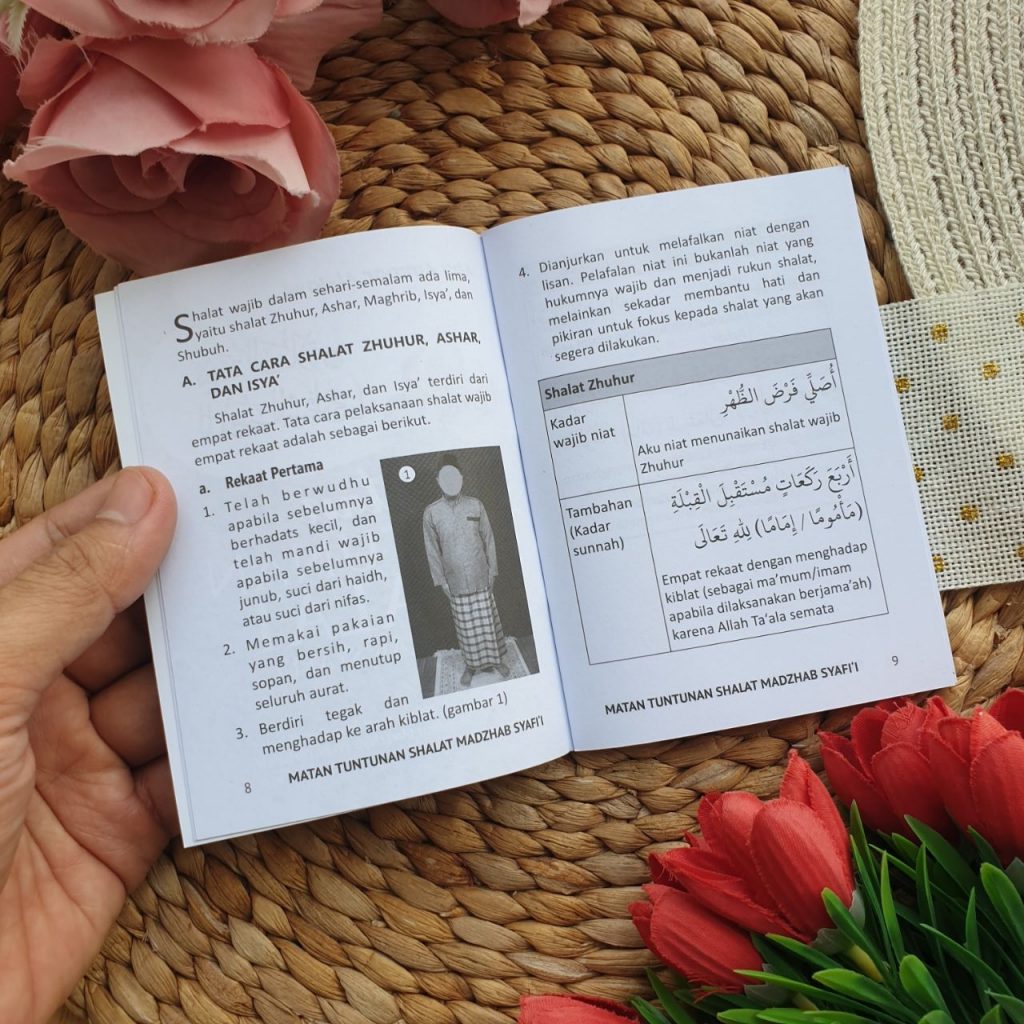 Shalat wajib dalam sehari-semalam ada lima,
yaitu shalat Zhuhur, Ashar, Maghrib, Isya’, dan
Shubuh.
A. TATA CARA SHALAT ZHUHUR, ASHAR,
DAN ISYA’
Shalat Zhuhur, Ashar, dan Isya’ terdiri dari
empat rekaat. Tata cara pelaksanaan shalat wajib
empat rekaat adalah sebagai berikut.
a. Rekaat Pertama
1. Telah berwudhu
apabila sebelumnya
berhadats kecil, dan
telah mandi wajib
apabila sebelumnya
junub, suci dari haidh,
atau suci dari nifas.
2. Memakai pakaian
yang bersih, rapi,
sopan, dan menutup
seluruh aurat.
3. Berdiri tegak dan
menghadap ke arah kiblat. (gambar 1)
1
8
MATAN TUNTUNAN SHALAT MADZHAB SYAFI’I
4. Dianjurkan untuk melafalkan niat dengan
lisan. Pelafalan niat ini bukanlah niat yang
hukumnya wajib dan menjadi rukun shalat,
melainkan sekadar membantu hati dan
pikiran untuk fokus kepada shalat yang akan
segera dilakukan.
Shalat Zhuhur
Kadar
wajib niat
أُصَلِّي فَرْضَ الظُّهْرِ
Aku niat menunaikan shalat wajib
Zhuhur
Tambahan
(Kadar
sunnah)
أَرْبَعَ رَكَعَاتٍ مُسْتَقْبِلَ الْقِبْلَةِ
(مَأْمُومًا / إِمَامًا) لِلهِ تَعَالَى
Empat rekaat dengan menghadap
kiblat (sebagai ma’mum/imam
apabila dilaksanakan berjama’ah)
karena Allah Ta‘ala semata
MATAN TUNTUNAN SHALAT MADZHAB SYAFI’I
9